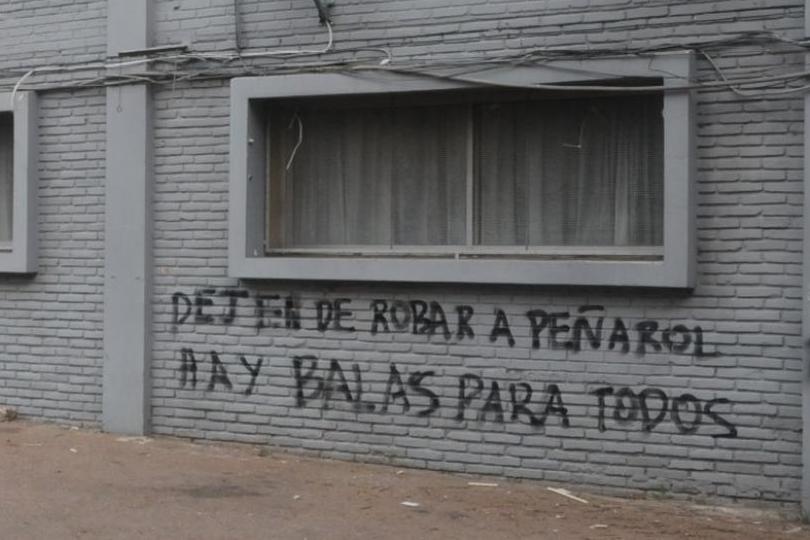 DEJEN DE ROBAR A PEÑAROL
HAY BALAS PARA TODOS